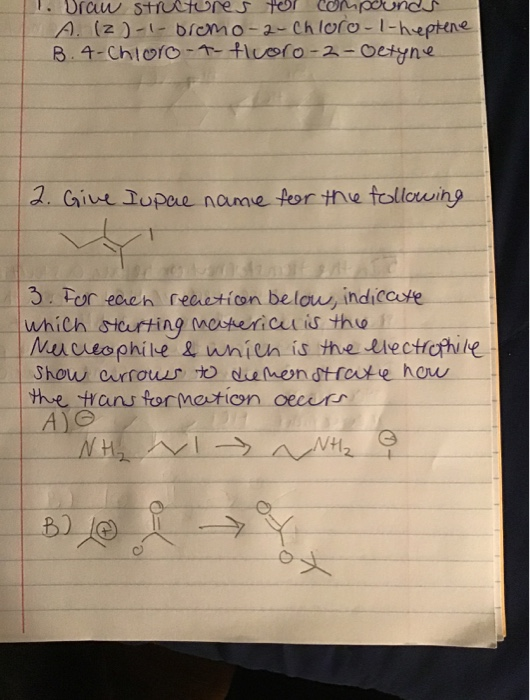 1. Draw structures for compounds
A. (Z)-1-bromo-2-Chloro-1-heptene
B. 4-Chloro-4-fluoro-2-Octyne
2. Give Iupac name feor the following
I
3. For each reaction below, indicate
which starting material is the
Nucleophile & which is the electrophile
show arrows to demonstrate how
the transformation occurs
A) ⊖
NH₂ I → NH₂ ⊖
I
B) ⊕ O → O
O O